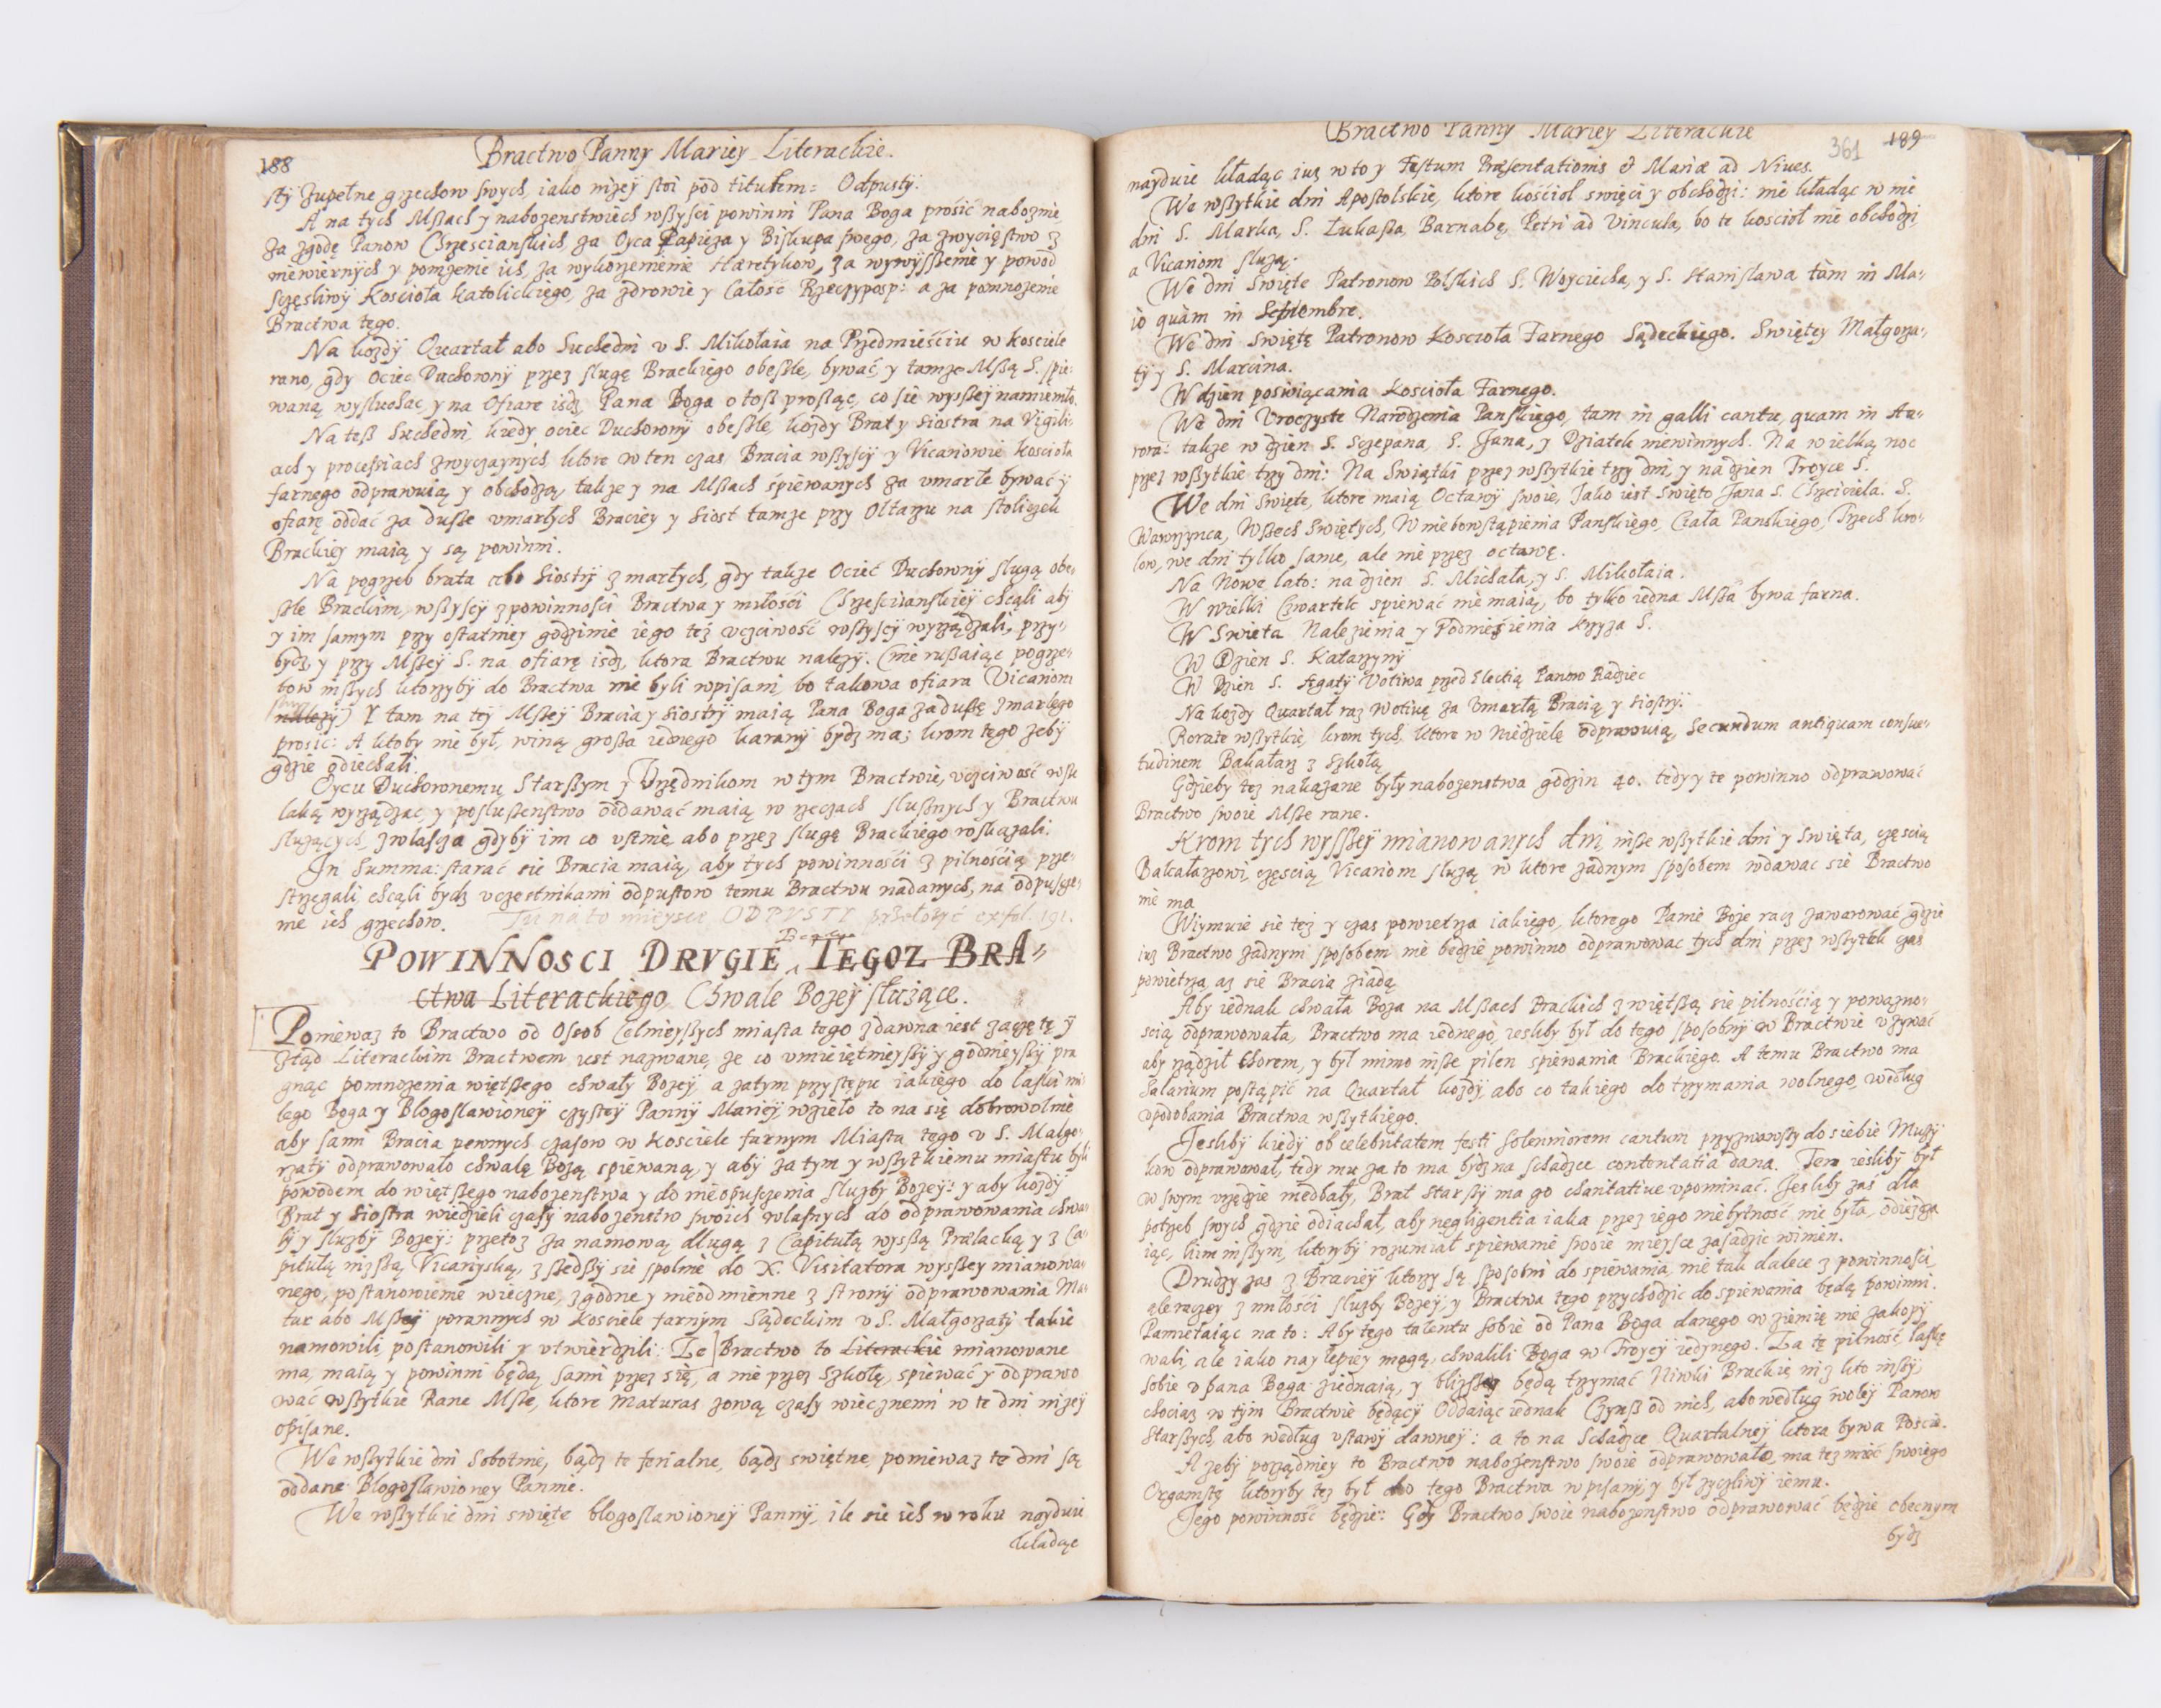 188
Bractwo Panny Mariey Literackie.
sty zupełne grzechow swych, iako niżey stoi pod titułem: Odpusty.
A na tych Mszach y nabozenstwiech wszyſci powinni Pana Boga prośić nabożnie
za zgodę Panow Chrzescianskich, za Oyca Papieża y Biskupa swego, za zwycięstwo z
niewiernych y pomżenie ich, za wykorzenienie Hæretykow, za wywyższenie y powod
szczęsliwy Kosciola Katolickiego, za zdrowie y całość Rzeczyposp: a za pomnożenie
Bractwa tego.
Na każdy Quartał abo Suchedni v S. Mikołaia na Przedmieściu w kosciele
rano, gdy Ociec Duchowny przez sługę Brackiego obeszle, bywać, y tamże Mszą S. spie-
waną wysłuchac, y na Ofiarę iśdź, Pana Boga o tosz prosząc, co sie wysszey namieniło.
Na tesz Suchedni, kiedy ociec Duchowny obeszle, każdy Brat y Siostra na Vigili-
ach y processiach zwyczaynych, ktore w ten czas Bracia wszyscy y Vicariowie kościoła
farnego odprawuią y obchodzą, także y na Mszach śpiewanych za vmarłe bywać y
ofiarę oddać za dusze vmarłych Braciey y Siost tamże przy Ołtarzu na stoliczek
Brackiey maią y są powinni.
Na pogrzeb brata abo Siostry zmarłych, gdy także Ociec Duchowny sługą obe-
szle Brackim, wszyscy z powinności Bractwa y miłości Chrzesciianskiey chcąli aby
y im samym przy ostatniey godzinie iego też vczciwość wszyscy wyrządzali, przy-
bydź, y przy Mszey S. na ofiarę isdź, ktora Bractwu należy. (nie ruszaiąc pogrze-
bow inszych ktorzyby do Bractwa nie byli wpisani, bo takowa ofiara Vicariom
należy) Y tam na tey Mszey Bracia y Siostry maią Pana Boga za duszę zmarłego
prosić: A ktoby nie był, winą grosza iednego karany bydź ma; krom tego żeby
gdzie odiechali.
Oycu Duchownemu, Starszym y Vrzędnikom w tym Bractwie, vczciwość wsze
laką wyrządzac, y posłuszenstwo oddawać maią w rzeczach słusznych y Bractwu
służących, zwłaszcza gdyby im co vstnie, abo przez sługę Brackiego roskazali.
In Summa: starać sie Bracia maią, aby tych powinności z pilnością prze-
strzegali, chcąli bydź vczestnikami odpustow temu Bractwu nadanych, na odpuszcze-
nie ich grzechow. Tu na to mieysce ODPVSTY przełożyć ex fol. 191.
POWINNOSCI DRVGIE, TEGOZ BRA-
ctwa Literackiego Chwale Bożey służące.
Ponieważ to Bractwo od Osob Celnieyszych miasta tego zdawna iest zaczęte y
ztąd Literackim Bractwem iest nazwane, że co vmieiętnieyszy y godnieyszy pra
gnąc pomnożenia większego chwały Bożey, a zatym przystępu iakiego do łaski mi-
łego Boga y Błogosławioney czystey Panny Mariey wzieło to na się dobrowolnie
aby sami Bracia pewnych czasow w Kosciele farnym Miasta tego v S. Małgo-
rzaty odprawowało chwałę Bożą spiewaną, y aby za tym y wszytkiemu miastu byli
powodem do więtszego nabożenstwa y do nieopusczenia służby Bożey: y aby każdy
Brat y Siostra wiedzieli czasy nabożenstw swoich własnych do odprawowania chwa-
ły y służby Bożey: przetoż za namową długą z Capitułą wyszą Prælacką y z Ca-
pitułą niższą Vicaryską, z szedszy sie społnie do X. Visitatora wysszey mianowa-
nego, postanowienie wieczne, zgodne y nieodmienne z strony odprawowania Ma-
tur abo Mszey porannych w Kosciele farnym Sądeckim v S. Małgorzaty takie
namowili, postanowili y vtwierdzili: Że Bractwo to Literackie mianowane
ma, maią y powinni będą, sami przez się, a nie przez Szkołę, spiewać y odprawo
wać wszytkie Rane Msze, ktore Maturas zową czasy wiecznemi w te dni niżey
opisane.
We wszytkie dni Sobotnie, bądź te ferialne, bądź swiętne, ponieważ te dni są
oddane Błogosławioney Pannie.
We wszytkie dni swięte błogosławioney Panny, ile sie ich w roku nayduie
kładąc
Bractwo Panny Mariey Literackie
361 189
nayduie kładąc iuż w to y Festum Præsentationis & Mariæ ad Niues.
We wszytkie dni Apostolskie, ktore kościoł swięci y obchodzi: nie kładąc w nie
dni S. Marka, S. Łukasza, Barnabę, Petri ad Vincula, bo te kościoł nie obchodzi,
a Vicariom służą.
We dni Swięte Patronow Polskich S. Woyciecha, y S. Stanisława tam in Ma-
io quàm in Septembre.
We dni Swiętę Patronow Kosciola Farnego Sądeckiego. Swiętey Małgorza-
ty y S. Marcina.
W dzien poswiącania Kosciola Farnego.
We dni Vroczyste Narodzenia Panskiego, tam in galli cantu, quam in Au-
rora: także w dzien S. Szczepana, S. Jana, y Dziatek niewinnych. Na wielką noc
przez wszytkie trzy dni: Na Swiątki przez wszytkie trzy dni, y na dzien Troyce S.
We dni Swięte, ktore maią Octawy swoie, Jako iest swięto Jana S. Chrzciciela. S.
Wawrzynca, Wszech Swiętych, W niebowstąpienia Panskiego, Ciała Panskiego, Trzech kro-
low, we dni tylko same, ale nie przez octawę.
Na Nowe lato: na dzien S. Michała, y S. Mikołaia.
W wielki Czwartek spiewać nie maią, bo tylko iedna Msza bywa farna.
W Swieta Nalezienia y Podniesienia Krzyża S.
W Dzien S. Katarzyny
W Dzien S. Agaty Votiwa przed Electią Panow Radziec
Na każdy Quartał raz wotiwę za Vmarłą Bracią y siostry.
Rorate wszytkie, krom tych, ktore w Niedzielę odprawuią, Secundum antiquam consue-
tudinem Bakałarz z Szkołą
Gdzieby też nakazane były nabożenstwa godzin 40. tedy y te powinno odprawować
Bractwo swoie Msze rane.
Krom tych wysszey mianowanych dni, insze wszytkie dni y swięta, częścią
Bakałarzowi, częścią Vicariom służą w ktore żadnym sposobem wdawac sie Bractwo
nie ma
Wiymuie sie też y czas powietrza iakiego, ktorego Panie Boże racz zawarować, gdzie
iuż Bractwo żadnym sposobem nie będzie powinno odprawowac tych dni przez wszytek czas
powietrza, aż sie Bracia ziadą
Aby iednak chwała Boża na Mszach Brackich z więtszą sie pilnością y poważno-
scią odprawowała, Bractwo ma iednego, iesliby był do tego sposobny w Bractwie vżywać
aby rządził Chorem, y był mimo insze pilen spiewania Brackiego. A temu Bractwo ma
Salarium postąpić na Quartał każdy, abo co takiego do trzymania wolnego, według
vpodobania Bractwa wszytkiego.
Jesliby kiedy ob celebritatem festi solenniorem cantum przyzwawszy do siebie Muzy
kow odprawował, tedy mu za to ma bydź na schadzce contentatia dana. Ten iesliby był
w swym vrzędzie niedbały, Brat Starszy ma go charitatiue vpominać. Jesliby zaś dla
potrzeb swych gdzie odiachał, aby negligentia iaka przez iego niebytność nie była, odieżdża
iąc, kim inszym, ktoryby rozumiał spiewanie swoie mieysce zasadzic winien.
Drudzy zas z Braciey ktorzy są sposobni do spiewania, nie tak dalece z powinnosci
ale raczey z miłości służby Bożey, y Bractwa tego przychodzic do spiewania będą powinni.
Pamietaiąc na to: Aby tego talentu sobie od Pana Boga danego w ziemię nie zakopy
wali, ale iako naylepiey mogą, chwalili Boga w Troycy iedynego. Za tę pilność, łaskę
sobie v Pana Boga ziednaią, y bliższey będą trzymać Niwki Brackie niż kto inszy
chociaż w tym Bractwie będący Oddaiąc iednak Czynsz od nich, abo według woley Panow
Starszych, abo według vstawy dawney: a to na Schadzce Quartalney ktora bywa Poście.
A żeby porządniey to Bractwo nabożenstwo swoie odprawowało, ma też mieć swoiego
Organistę ktoryby też był do tego Bractwa wpisany, y był życzliwy iemu.
Jego powinność będzie: Gdy Bractwo swoie nabożenstwo odprawować będzie obecnym
bydź